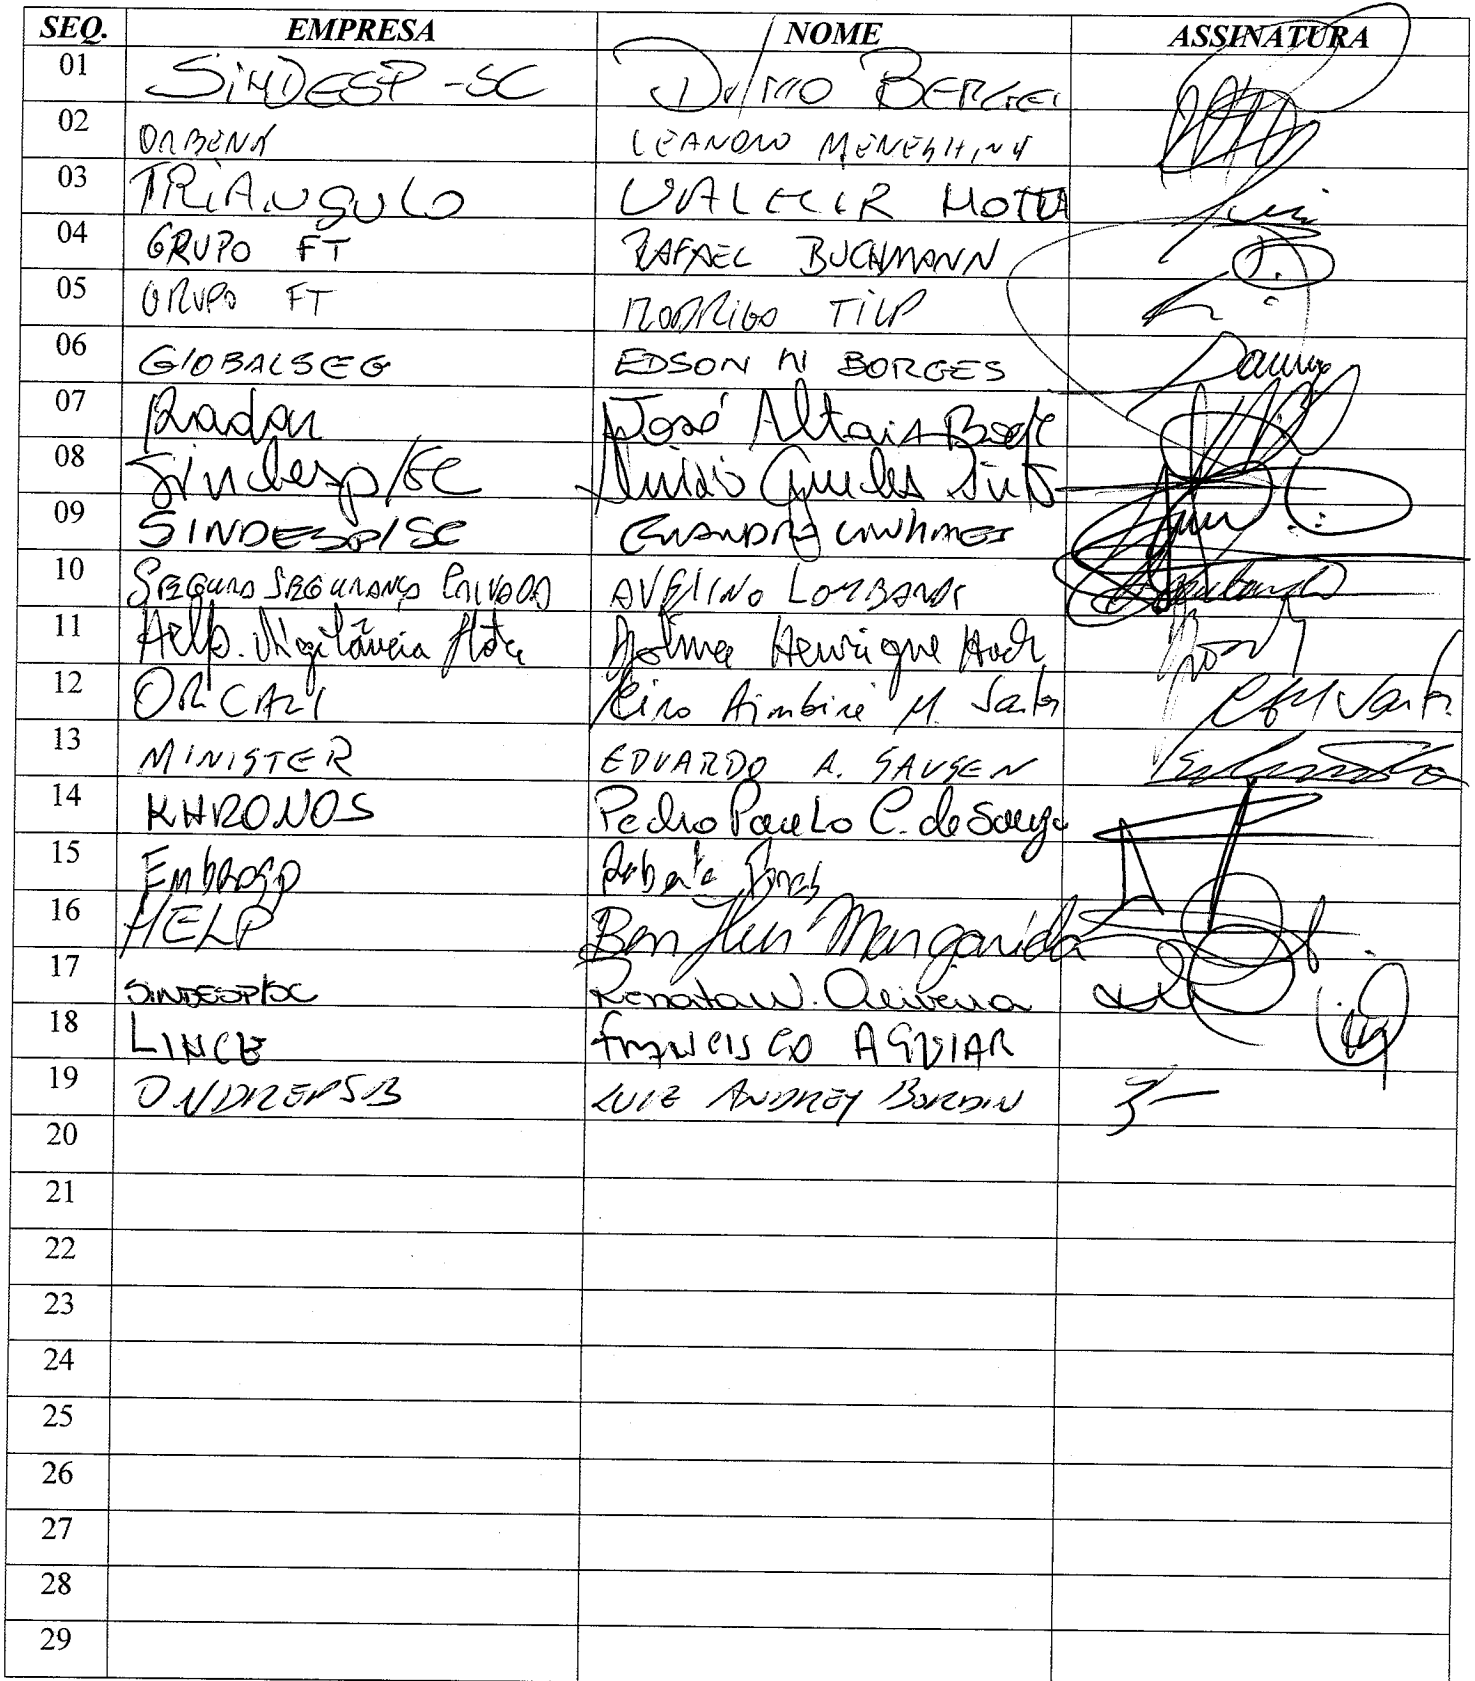 SEQ. EMPRESA NOME ASSINATURA
01 SINDESP-SC Dilmo BERGER
02 ORBENK LEANDRO MENEGHINI
03 TRIANGULO VALECIR MOTTA
04 GRUPO FT RAFAEL BUCHMANN
05 GRUPO FT RODRIGO TILP
06 GLOBALSEG EDSON N BORGES
07 Radar José Altair
08 Sindesp/SC Guedes
09 SINDESP/SC EVANDRA LINHARES
10 SEGURA SEGURANÇA PRIVADA AVELINO LOMBARDI
11 Help. Vigilância Henrique
12 ORCALI Aimbiré M. Santos
13 MINISTER EDUARDO A. SAUSEN
14 KHRONOS Pedro Paulo C. de Souza
15 Embrasp
16 HELP Ben Hur Margarida
17 SINDESP/SC Renata W. Oliveira
18 LINCE FRANCISCO AGUIAR
19 ONDREPSB LUIZ ANDREY BORDIN
20
21
22
23
24
25
26
27
28
29